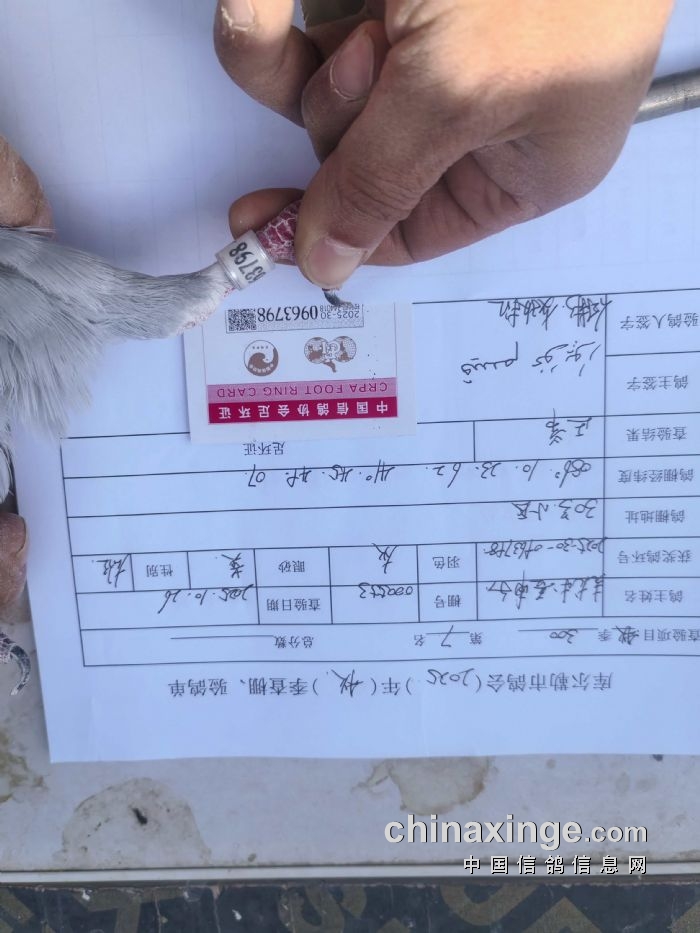 库尔勒市鸽会(2025)年(秋)季查棚、验鸽单
查验项目 秋季 300 第 7 名 总分数
鸽主姓名 棚号 000553 查验日期 2025.10.26
获奖鸽环号 2025-30-0963798 羽色 灰 眼砂 黄 性别
鸽棚地址 303小区
鸽棚经纬度 086°.10.23.62. 41°.45.48.07.
查验结果 正常 足环证
鸽主签字
验鸽人签字
中国信鸽协会足环证
CRPA FOOT RING CARD
2025-30 0963798
63798
chinaxinge.com
中国信鸽信息网